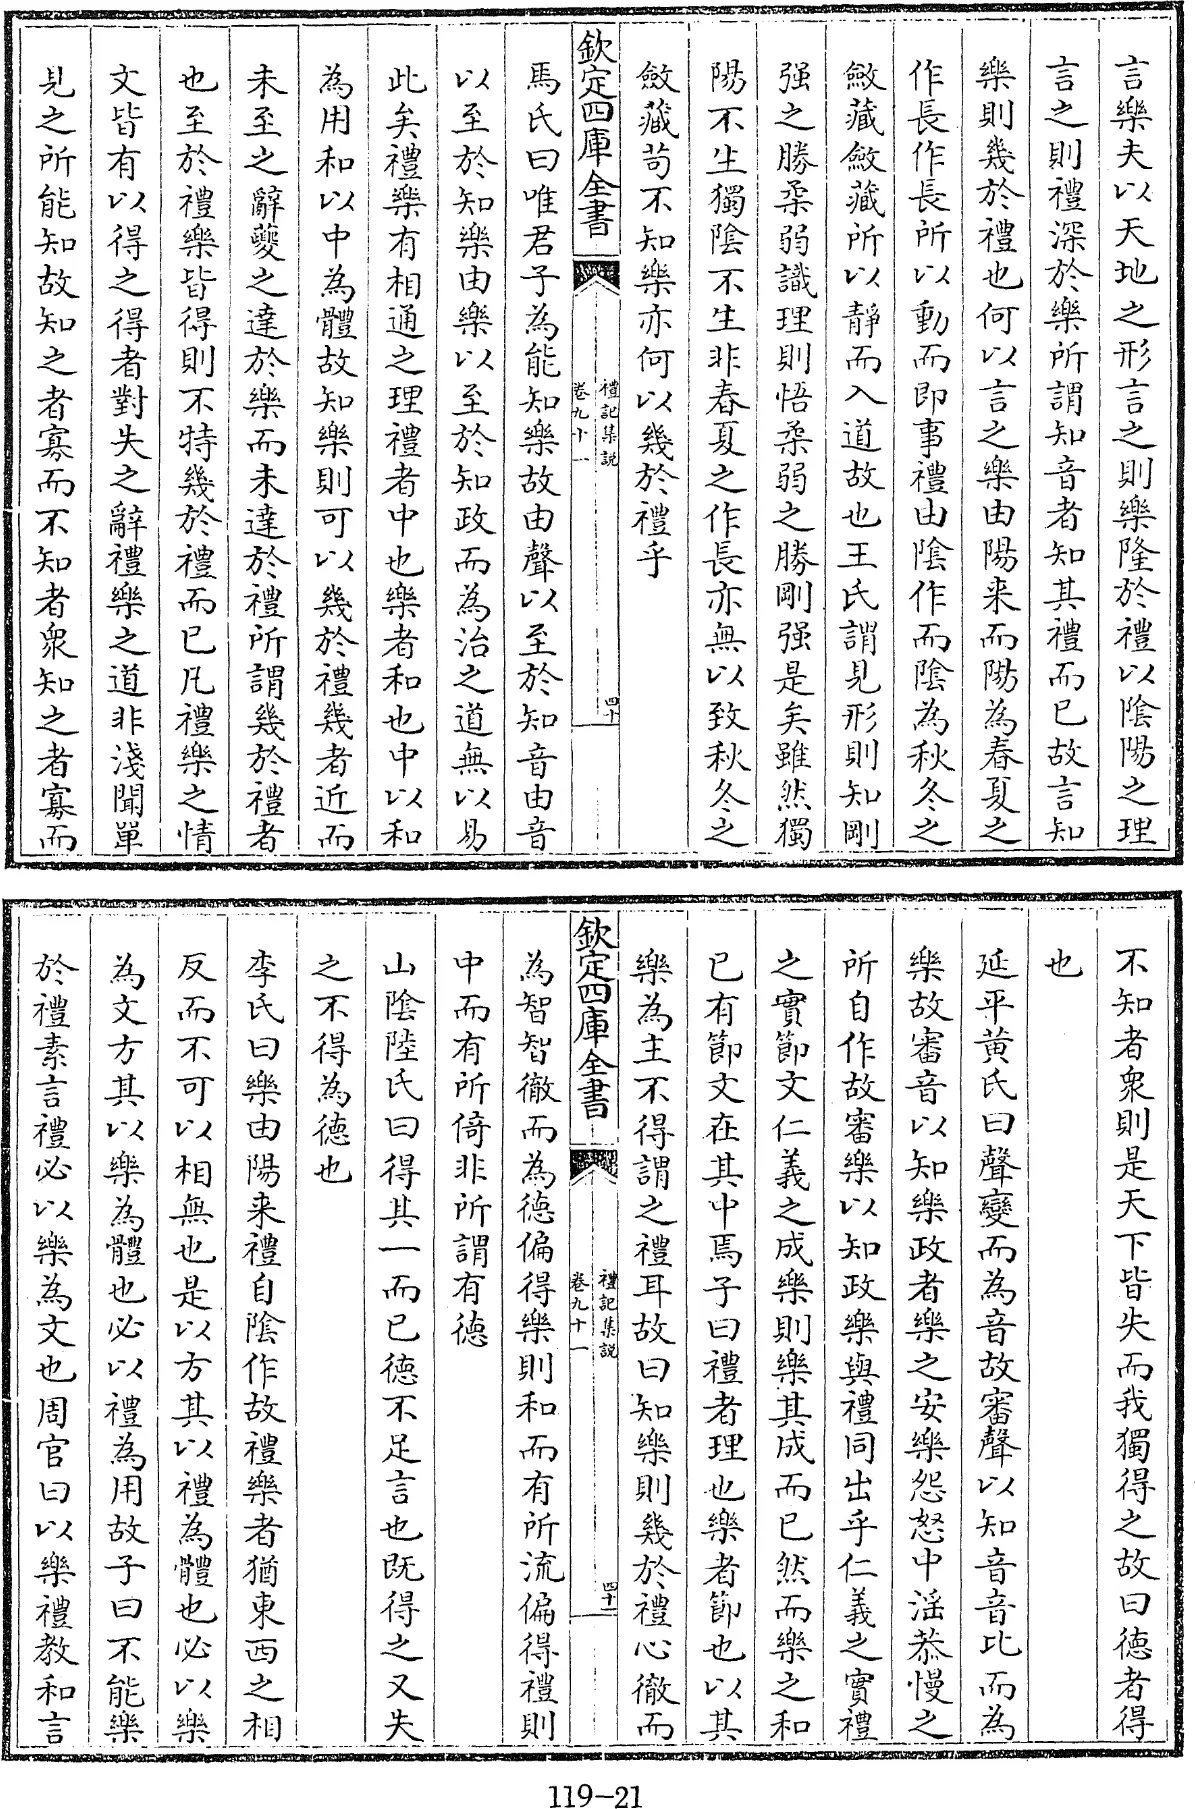 言樂夫以天地之形言之則樂隆於禮以陰陽之理
言之則禮深於樂所謂知音者知其禮而已故言知
樂則幾於禮也何以言之樂由陽来而陽為春夏之
作長作長所以動而即事禮由陰作而陰為秋冬之
斂藏斂藏所以靜而入道故也王氏謂見形則知剛
强之勝柔弱識理則悟柔弱之勝剛强是矣雖然獨
陽不生獨陰不生非春夏之作長亦無以致秋冬之
斂藏苟不知樂亦何以幾於禮乎
欽定四庫全書
禮記集説
卷九十一
四十
馬氏曰唯君子為能知樂故由聲以至於知音由音
以至於知樂由樂以至於知政而為治之道無以易
此矣禮樂有相通之理禮者中也樂者和也中以和
為用和以中為體故知樂則可以幾於禮幾者近而
未至之辭夔之達於樂而未達於禮所謂幾於禮者
也至於禮樂皆得則不特幾於禮而已凡禮樂之情
文皆有以得之得者對失之辭禮樂之道非淺聞單
見之所能知故知之者寡而不知者衆知之者寡而
不知者衆則是天下皆失而我獨得之故曰德者得
也
延平黄氏曰聲變而為音故審聲以知音音比而為
樂故審音以知樂政者樂之安樂怨怒中淫恭慢之
所自作故審樂以知政樂與禮同出乎仁義之實禮
之實節文仁義之成樂則樂其成而已然而樂之和
已有節文在其中焉子曰禮者理也樂者節也以其
樂為主不得謂之禮耳故曰知樂則幾於禮心徹而
欽定四庫全書
禮記集説
卷九十一
四十一
為智智徹而為德偏得樂則和而有所流偏得禮則
中而有所倚非所謂有德
山陰陸氏曰得其一而已德不足言也既得之又失
之不得為德也
李氏曰樂由陽来禮自陰作故禮樂者猶東西之相
反而不可以相無也是以方其以禮為體也必以樂
為文方其以樂為體也必以禮為用故子曰不能樂
於禮素言禮必以樂為文也周官曰以樂禮教和言
119-21